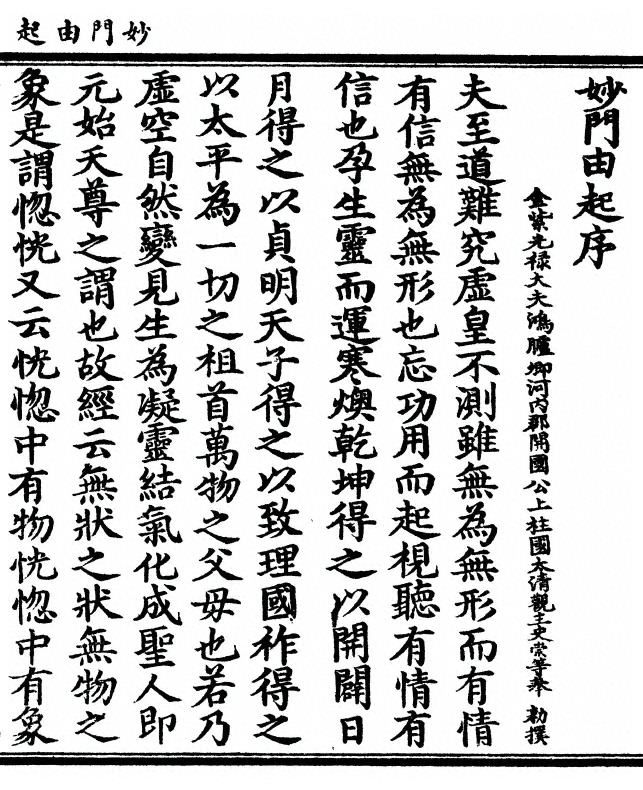 妙門由起
妙門由起序
金紫光祿大夫鴻臚卿河內郡開國公上柱國太清觀主史崇等奉 勅撰
夫至道難究虛皇不測雖無為無形而有情
有信無為無形也忘功用而起視聽有情有
信也孕生靈而運寒燠乾坤得之以開闢日
月得之以貞明天子得之以致理國祚得之
以太平為一切之祖首萬物之父母也若乃
虛空自然變見生為凝靈結氣化成聖人即
元始天尊之謂也故經云無狀之狀無物之
象是謂惚恍又云恍惚中有物恍惚中有象